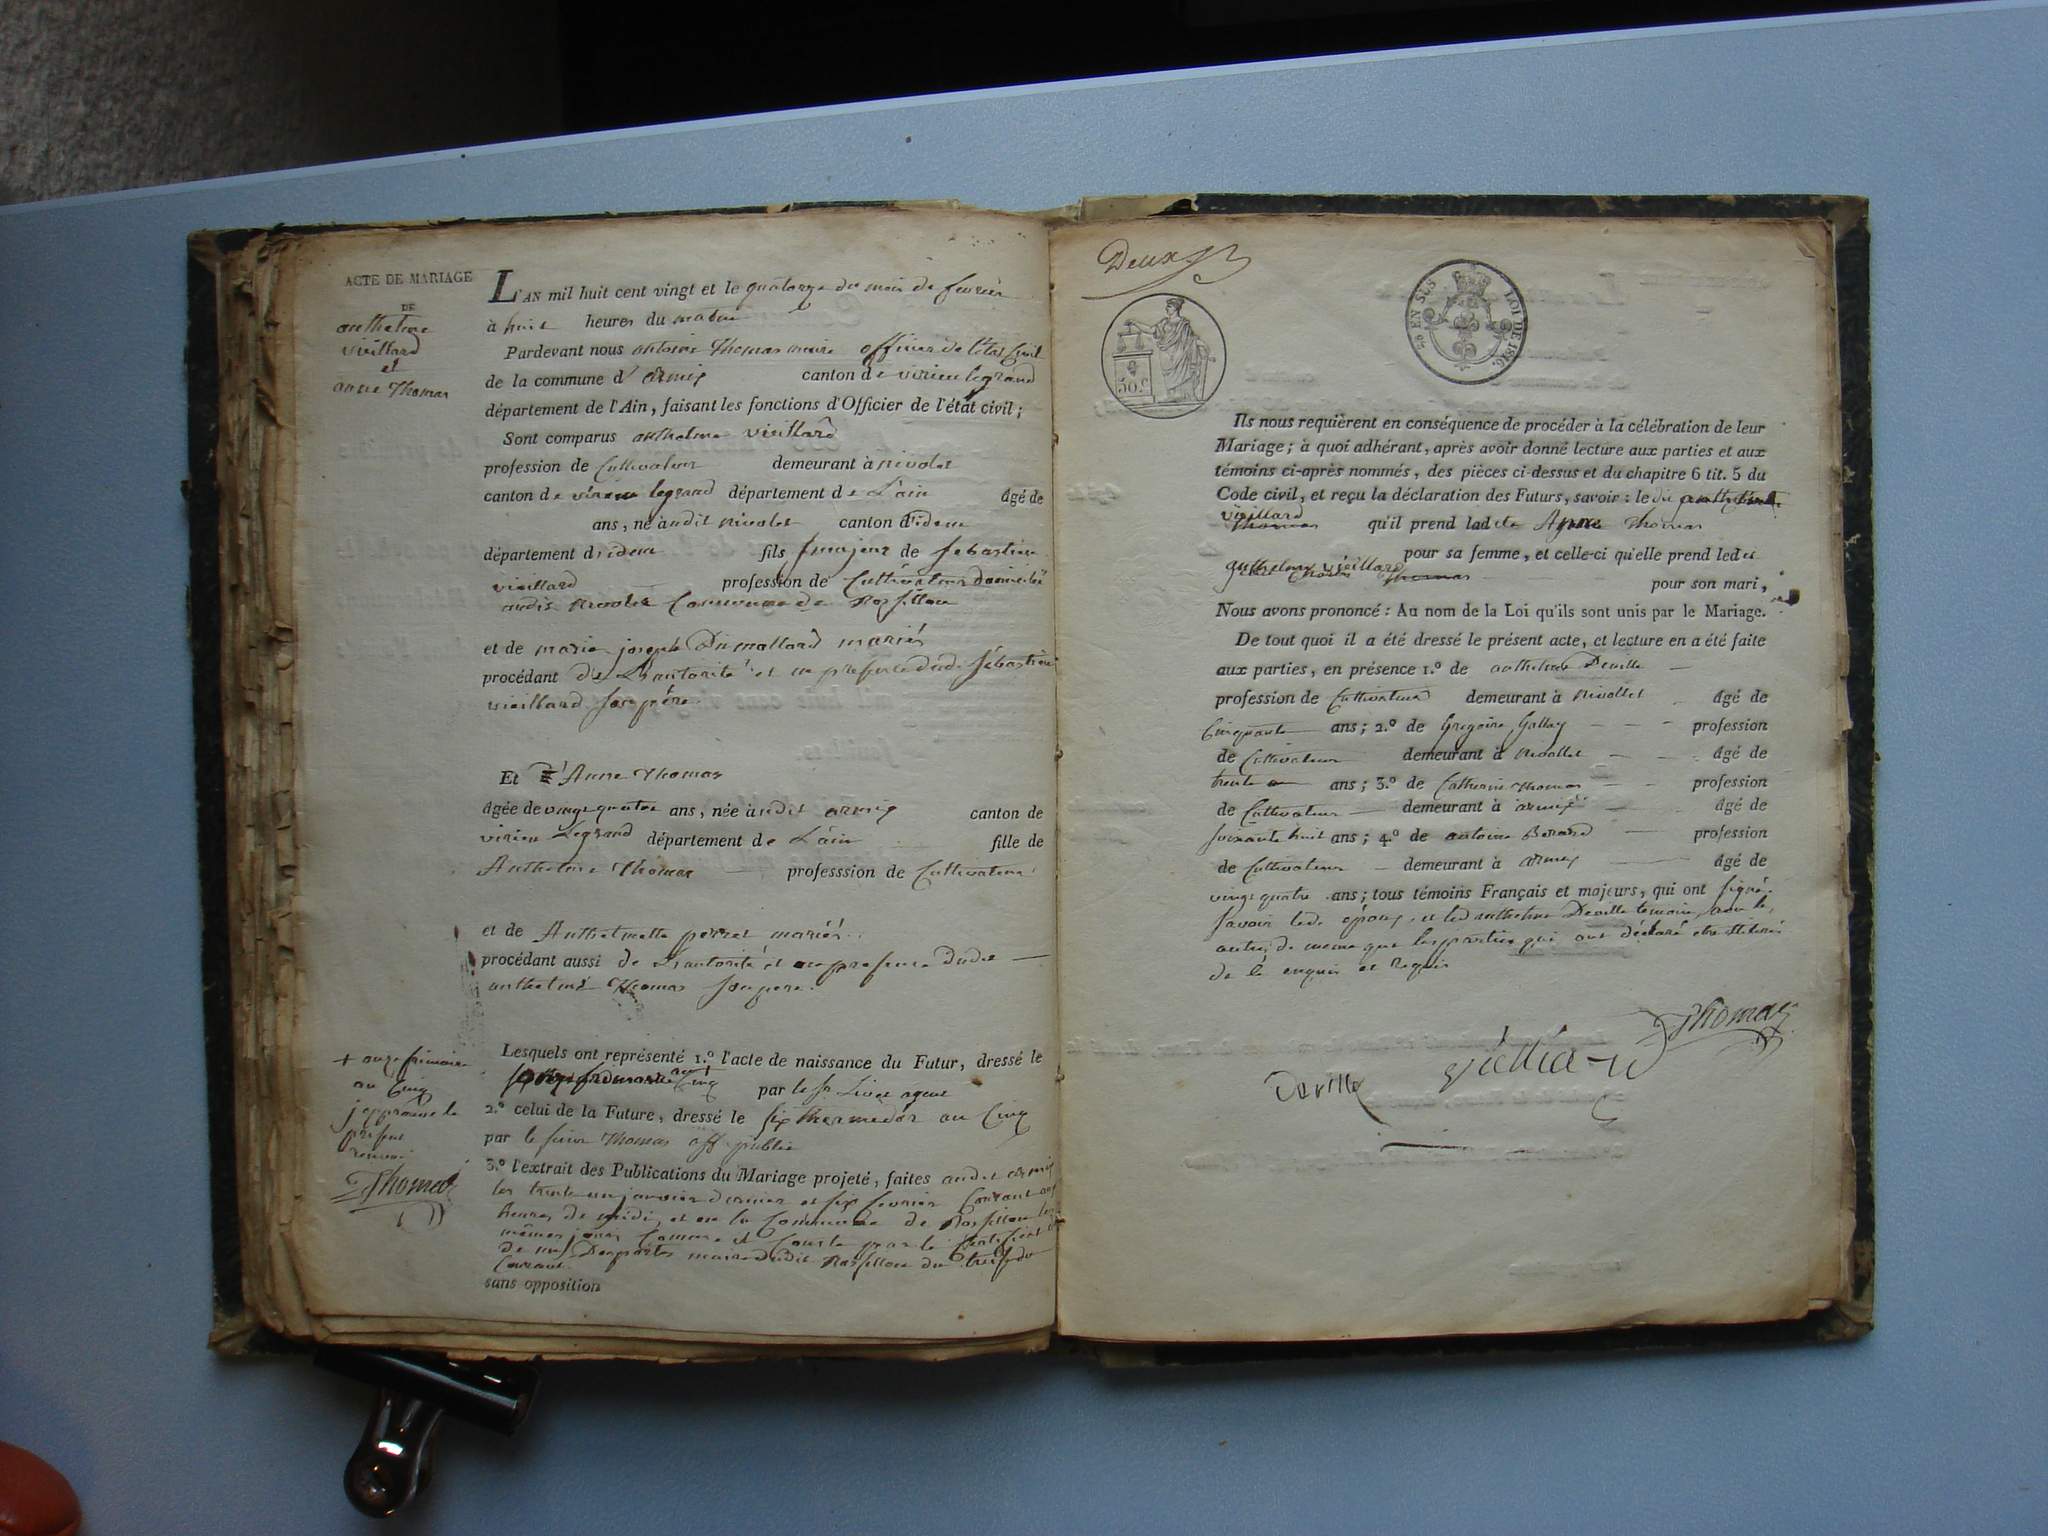 ACTE DE MARIAGE
DE
anthelme
vieillard
et
anne Thomas
L'AN mil huit cent vingt et le quatorze du mois de fevrier
à huit heures du matin
Pardevant nous antoine Thomas maire officier de l'état Civil
de la commune d' armix canton de virieu legrand
département de l'Ain, faisant les fonctions d'Officier de l'état civil;
Sont comparus anthelme vieillard
profession de Cultivateur demeurant à nivolet
canton de virieu legrand département de L'ain âgé de
ans, né audit nivolet canton d'idem
département d'idem fils majeur de Sebastien
vieillard profession de Cultivateur domicilié
audit nivolet Commune de Rossillon
et de marie josephe Dumollard mariés
procédant de L'autorité et en presence dud. Sébastien
vieillard son père
Et Anne Thomas
âgée de vingt quatre ans, née audit armix canton de
virieu Legrand département de L'ain fille de
Anthelme Thomas professsion de Cultivateur
et de Anthelmette perret mariés
procédant aussi de L'autorité et en presence dudit
anthelme Thomas son pere.
Lesquels ont représenté 1.º l'acte de naissance du Futur, dressé le
par le Sr. Livet agent
2.º celui de la Future, dressé le six thermidor an Cinq
par le sieur Thomas off. public
3.º l'extrait des Publications du Mariage projeté, faites audit armix
les trente un janvier dernier et six fevrier Courant
heures de midi, et en la Commune de Rossillon les
mêmes jours Comme il Conste par le Certificat
de mr Desportes maire dudit Rossillon du treize du
Courant
sans opposition
+ onze frimaire
an Cinq
j'approuve le
présent
renvoi
Thomas
Deux
50 C.
EN SUS LOI DE 1816.
Ils nous requièrent en conséquence de procéder à la célébration de leur
Mariage; à quoi adhérant, après avoir donné lecture aux parties et aux
témoins ci-après nommés, des pièces ci-dessus et du chapitre 6 tit. 5 du
Code civil, et reçu la déclaration des Futurs, savoir: le dit anthelme
vieillard
Thomas qu'il prend ladite Anne Thomas
pour sa femme, et celle-ci qu'elle prend ledit
anthelme vieillard
Thomas pour son mari,
Nous avons prononcé: Au nom de la Loi qu'ils sont unis par le Mariage.
De tout quoi il a été dressé le présent acte, et lecture en a été faite
aux parties, en présence 1.º de anthelme Deville
profession de Cultivateur demeurant à nivollet âgé de
Cinquante ans; 2.º de Gregoire Gallay profession
de Cultivateur demeurant à nivollet âgé de
trente ans; 3.º de Catherin Thomas profession
de Cultivateur demeurant à armix âgé de
soixante huit ans; 4.º de antoine Berard profession
de Cultivateur demeurant à armix âgé de
vingt quatre ans; tous témoins Français et majeurs, qui ont signé.
Savoir led. époux et led anthelme Deville temoin, non les
autres de meme que les parties qui ont déclaré etre illiterés
de ce enquis et Requis
Thomas
vielliard
Deville